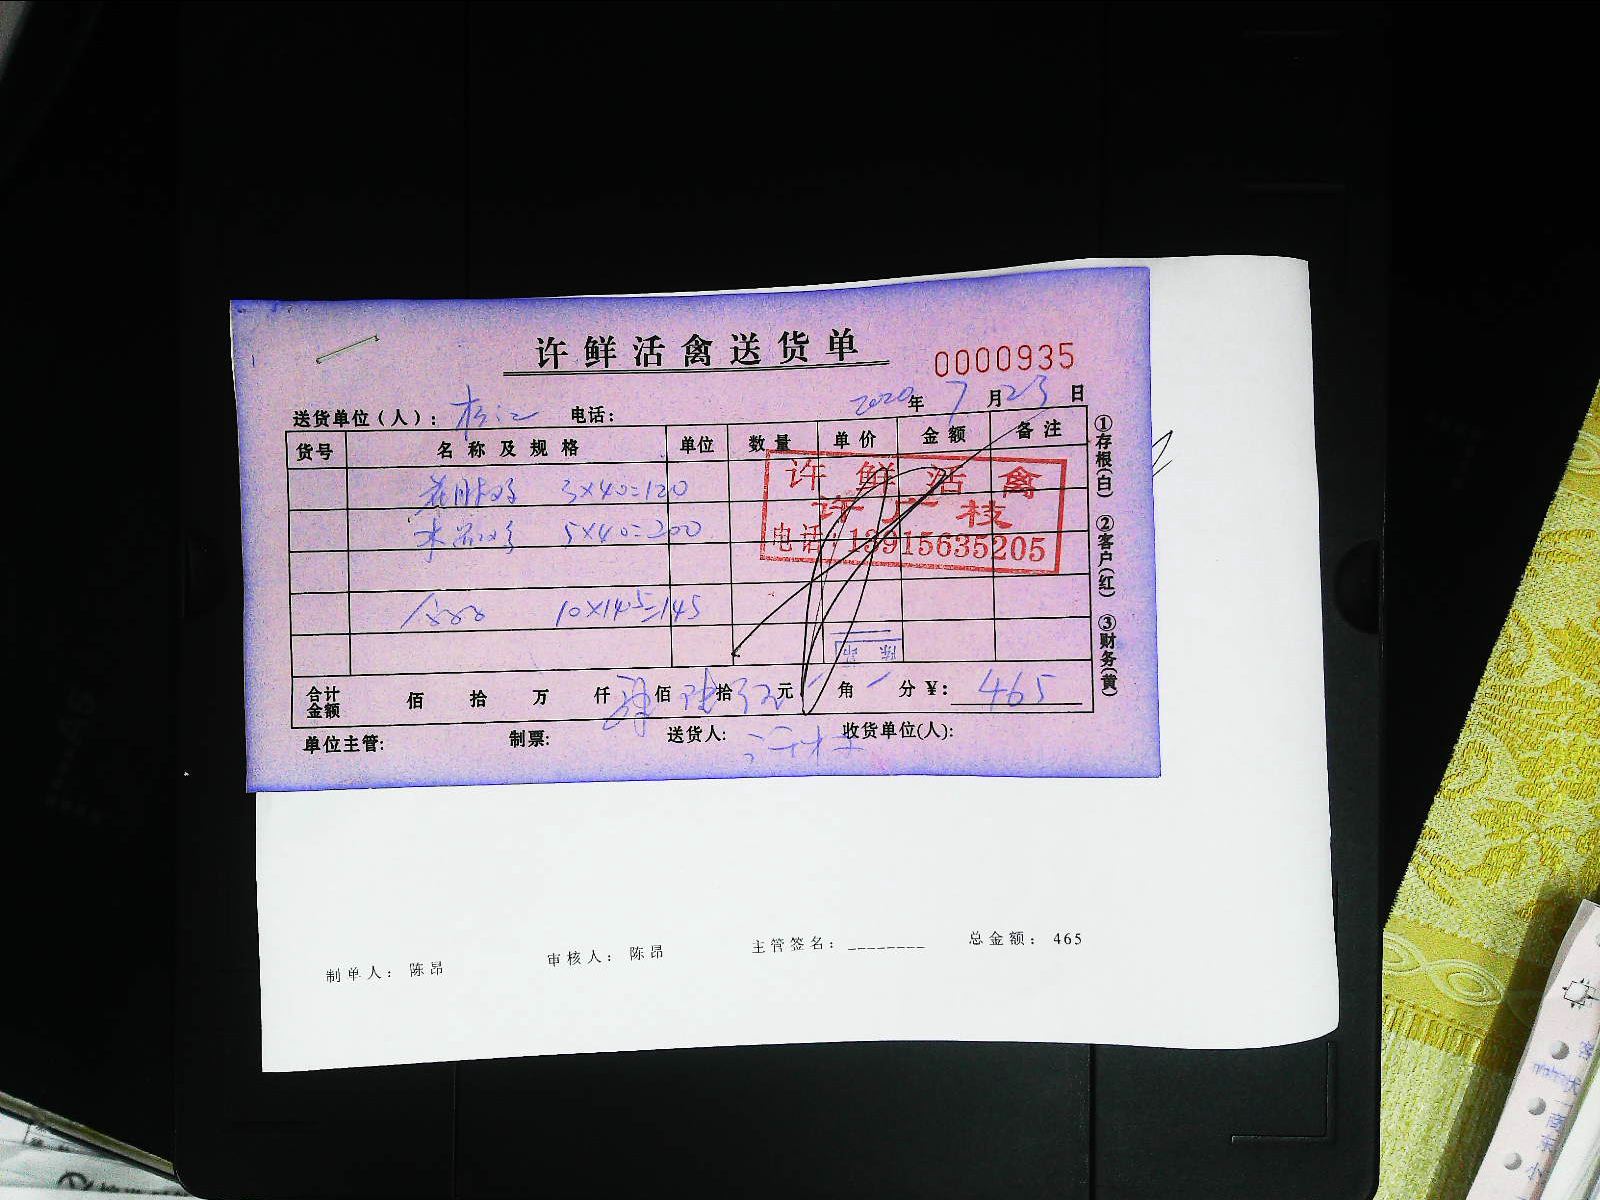 许鲜活禽送货单
0000935
送货单位(人): 松江 电话: 2020年 7月23日
货号 名称及规格 单位 数量 单价 金额 备注
3×40=120
5×40=200
10×14.5=145
许鲜活禽
许广枝
电话:13915635205
合计金额 佰 拾 万 仟 肆佰 陆拾 伍元 角 分 ¥: 465
单位主管: 制票: 送货人: 收货单位(人):
①存根(白) ②客户(红) ③财务(黄)
制单人: 陈昂 审核人: 陈昂 主管签名: ________ 总金额: 465